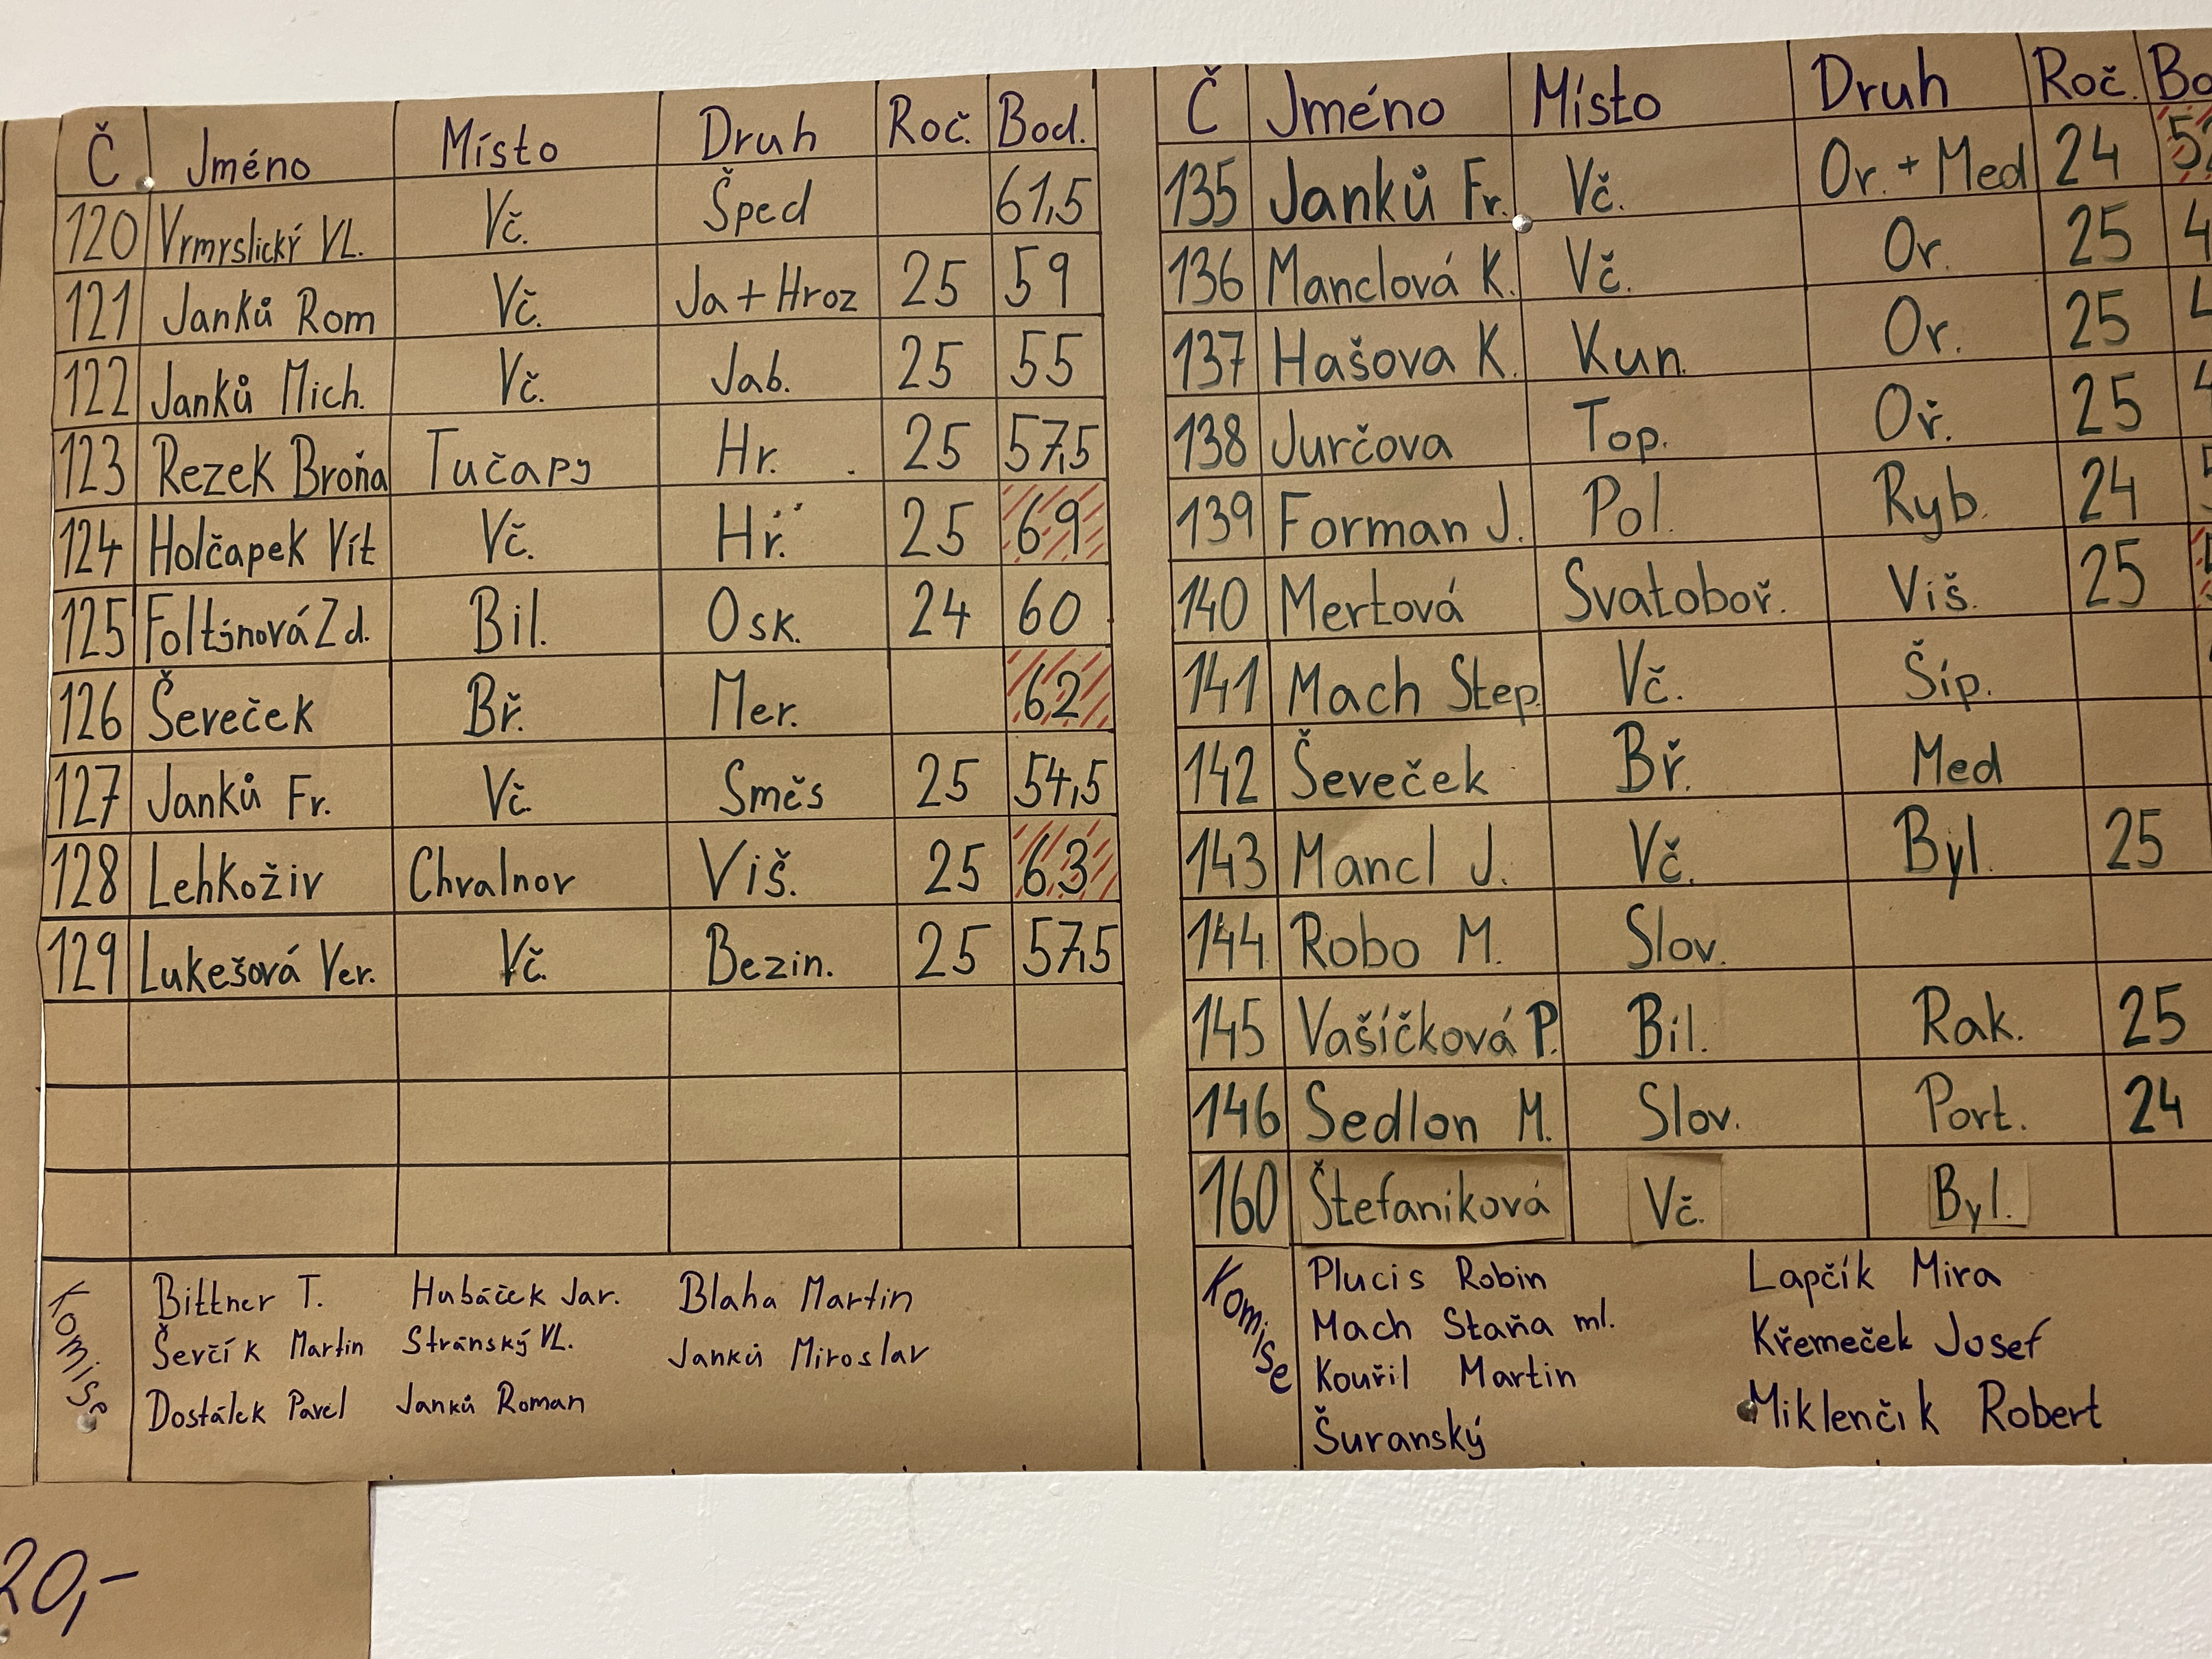 Č Jméno Místo Druh Roč. Bod.
120 Vrmrslický VL. Vč. Šped 61,5
121 Janků Rom Vč. Ja + Hroz 25 59
122 Janků Mich. Vč. Jab. 25 55
123 Rezek Broňa Tučapy Hr. 25 57,5
124 Holčapek Vít Vč. Hr. 25 69
125 Foltýnová Zd. Bil. Osk. 24 60
126 Ševeček Bř. Mer. 62
127 Janků Fr. Vč. Směs 25 54,5
128 Lehkoživ Chvalnov Viš. 25 63
129 Lukešová Ver. Vč. Bezin. 25 57,5
Komise
Bittner T. Hubáček Jar. Blaha Martin
Ševčík Martin Stránský VL. Janků Miroslav
Dostálek Pavel Janků Roman
Č Jméno Místo Druh Roč.
135 Janků Fr. Vč. Or. + Med 24
136 Manclová K. Vč. Or. 25
137 Hašova K. Kun. Or. 25
138 Jurčova Top. Oř. 25
139 Forman J. Pol. Ryb. 24
140 Mertová Svatoboř. Viš. 25
141 Mach Step. Vč. Šíp.
142 Ševeček Bř. Med
143 Mancl J. Vč. Byl. 25
144 Robo M. Slov.
145 Vašíčková P. Bil. Rak. 25
146 Sedlon M. Slov. Port. 24
160 Štefaniková Vč. Byl.
Komise
Plucis Robin Lapčík Mira
Mach Staňa ml. Křemeček Josef
Kouřil Martin Miklenčik Robert
Šuranský
20,-